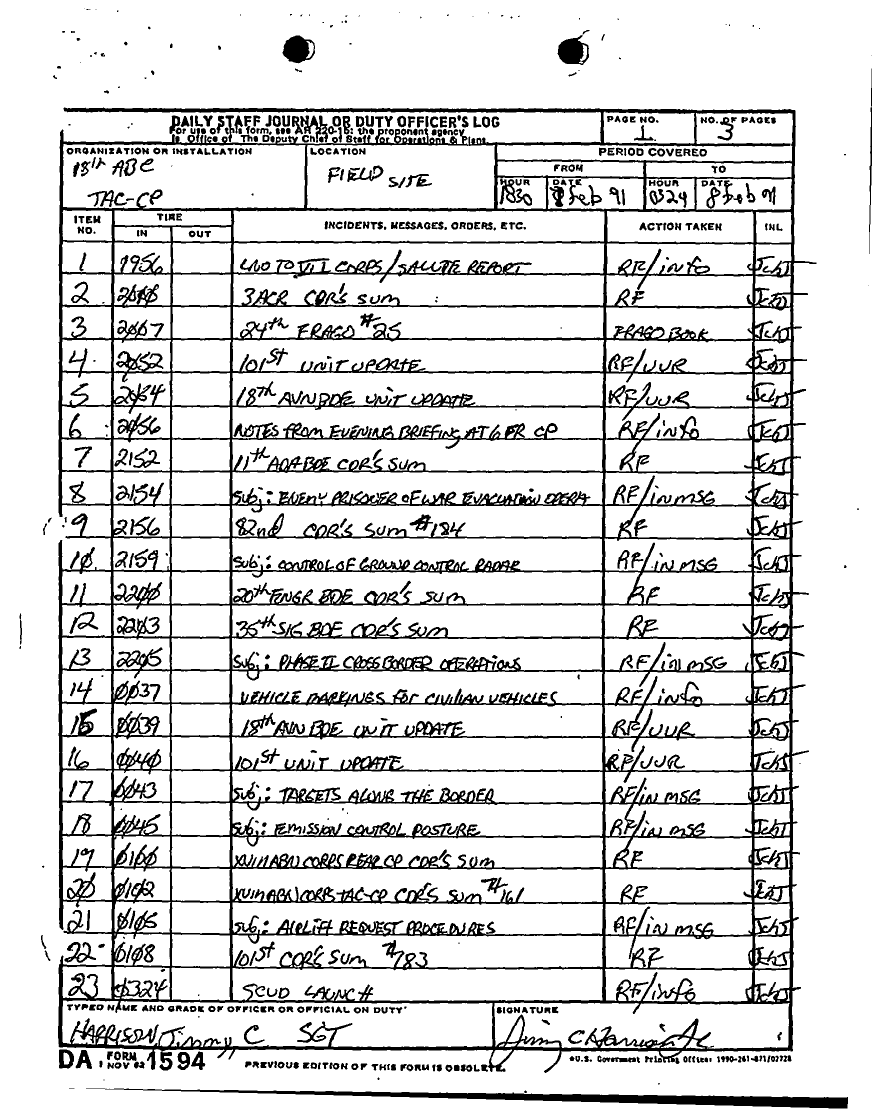 DAILY STAFF JOURNAL OR DUTY OFFICER'S LOG
For use of this form, see AR 220-15; the proponent agency
is Office of The Deputy Chief of Staff for Operations & Plans.
PAGE NO.
1
NO. OF PAGES
3
ORGANIZATION OR INSTALLATION
18th ABC
TAC-CP
LOCATION
FIELD SITE
PERIOD COVERED
FROM
TO
HOUR DATE HOUR DATE
1830 Feb 91 0324 8 Feb 91
ITEM NO. TIME IN OUT INCIDENTS, MESSAGES, ORDERS, ETC. ACTION TAKEN INL
1 1956 LNO TO VII CORPS/SALUTE REPORT RF/info
2 3ACR CDR'S SUM RF
3 2007 24th FRAGO #25 FRAGO BOOK
4 2052 101st UNIT UPDATE RF/UUR
5 18th AVN BDE UNIT UPDATE RF/UUR
6 2056 NOTES FROM EVENING BRIEFING AT 6 FR CP RF/info
7 2152 11th ADA BDE CDR'S SUM RF
8 2154 Subj: ENEMY PRISONER OF WAR EVACUATION OPERA RF/in MSG
9 2156 82nd CDR'S SUM #184 RF
10 2159 Subj: CONTROL OF GROUND CONTROL RADAR RF/in MSG
11 2200 20th ENGR BDE CDR'S SUM RF
12 2203 35th SIG BDE CDR'S SUM RF
13 2205 Subj: PHASE II CROSS BORDER OPERATIONS RF/in MSG
14 0037 VEHICLE MARKINGS FOR CIVILIAN VEHICLES RF/info
15 0039 18th AVN BDE UNIT UPDATE RF/UUR
16 0040 101st UNIT UPDATE RF/UUR
17 0043 Subj: TARGETS ALONG THE BORDER RF/in MSG
18 0045 Subj: EMISSION CONTROL POSTURE RF/in MSG
19 0100 XVIII ABN CORPS REAR CP CDR'S SUM RF
20 0102 XVIII ABN CORPS TAC-CP CDR'S SUM #161 RF
21 0105 Subj: AIRLIFT REQUEST PROCEDURES RF/in MSG
22 0108 101st CDR'S SUM #783 RF
23 0324 SCUD LAUNCH RF/info
TYPED NAME AND GRADE OF OFFICER OR OFFICIAL ON DUTY
HARRISON, Jimmy C SGT
SIGNATURE
Jimmy C Harrison
DA FORM 1594
1 NOV 62
PREVIOUS EDITION OF THIS FORM IS OBSOLETE.
*U.S. Government Printing Office: 1990-261-871/02728